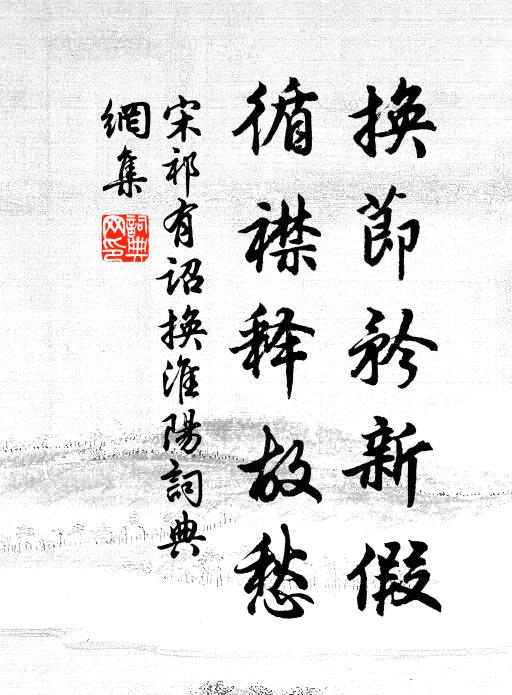 換節矜新假
循襟释故愁
宋祁有詔換淮陽詞典
網集
詞典
网印